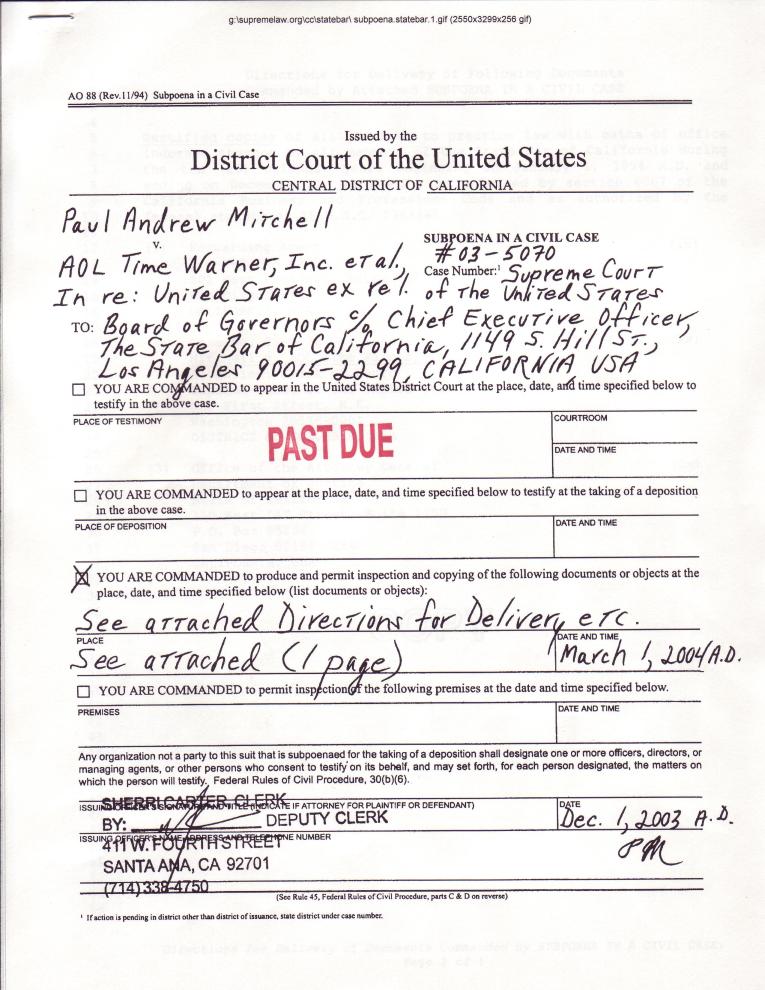 g:\supremelaw.org\cc\statebar\ subpoena.statebar.1.gif (2550x3299x256 gif)
AO 88 (Rev.11/94) Subpoena in a Civil Case
Issued by the
District Court of the United States
CENTRAL DISTRICT OF CALIFORNIA
Paul Andrew Mitchell
v.
SUBPOENA IN A CIVIL CASE
#03-5070
AOL Time Warner, Inc. et al.,
Case Number:¹ Supreme Court
In re: United States ex rel.
of the United States
TO: Board of Governors c/o Chief Executive Officer,
The State Bar of California, 1149 S. Hill St.,
Los Angeles 90015-2299, CALIFORNIA, USA
YOU ARE COMMANDED to appear in the United States District Court at the place, date, and time specified below to
testify in the above case.
PLACE OF TESTIMONY
COURTROOM
PAST DUE
DATE AND TIME
YOU ARE COMMANDED to appear at the place, date, and time specified below to testify at the taking of a deposition
in the above case.
PLACE OF DEPOSITION
DATE AND TIME
X YOU ARE COMMANDED to produce and permit inspection and copying of the following documents or objects at the
place, date, and time specified below (list documents or objects):
See attached Directions for Delivery etc.
PLACE
DATE AND TIME
See attached (1 page)
March 1, 2004 A.D.
YOU ARE COMMANDED to permit inspection of the following premises at the date and time specified below.
PREMISES
DATE AND TIME
Any organization not a party to this suit that is subpoenaed for the taking of a deposition shall designate one or more officers, directors, or
managing agents, or other persons who consent to testify on its behalf, and may set forth, for each person designated, the matters on
which the person will testify. Federal Rules of Civil Procedure, 30(b)(6).
SHERRI CARTER, CLERK
ISSUING OFFICER'S SIGNATURE AND TITLE (INDICATE IF ATTORNEY FOR PLAINTIFF OR DEFENDANT)
DATE
BY: DEPUTY CLERK
Dec. 1, 2003 A.D.
ISSUING OFFICER'S NAME, ADDRESS AND TELEPHONE NUMBER
PM
411 W. FOURTH STREET
SANTA ANA, CA 92701
(714) 338-4750
(See Rule 45, Federal Rules of Civil Procedure, parts C & D on reverse)
¹ If action is pending in district other than district of issuance, state district under case number.